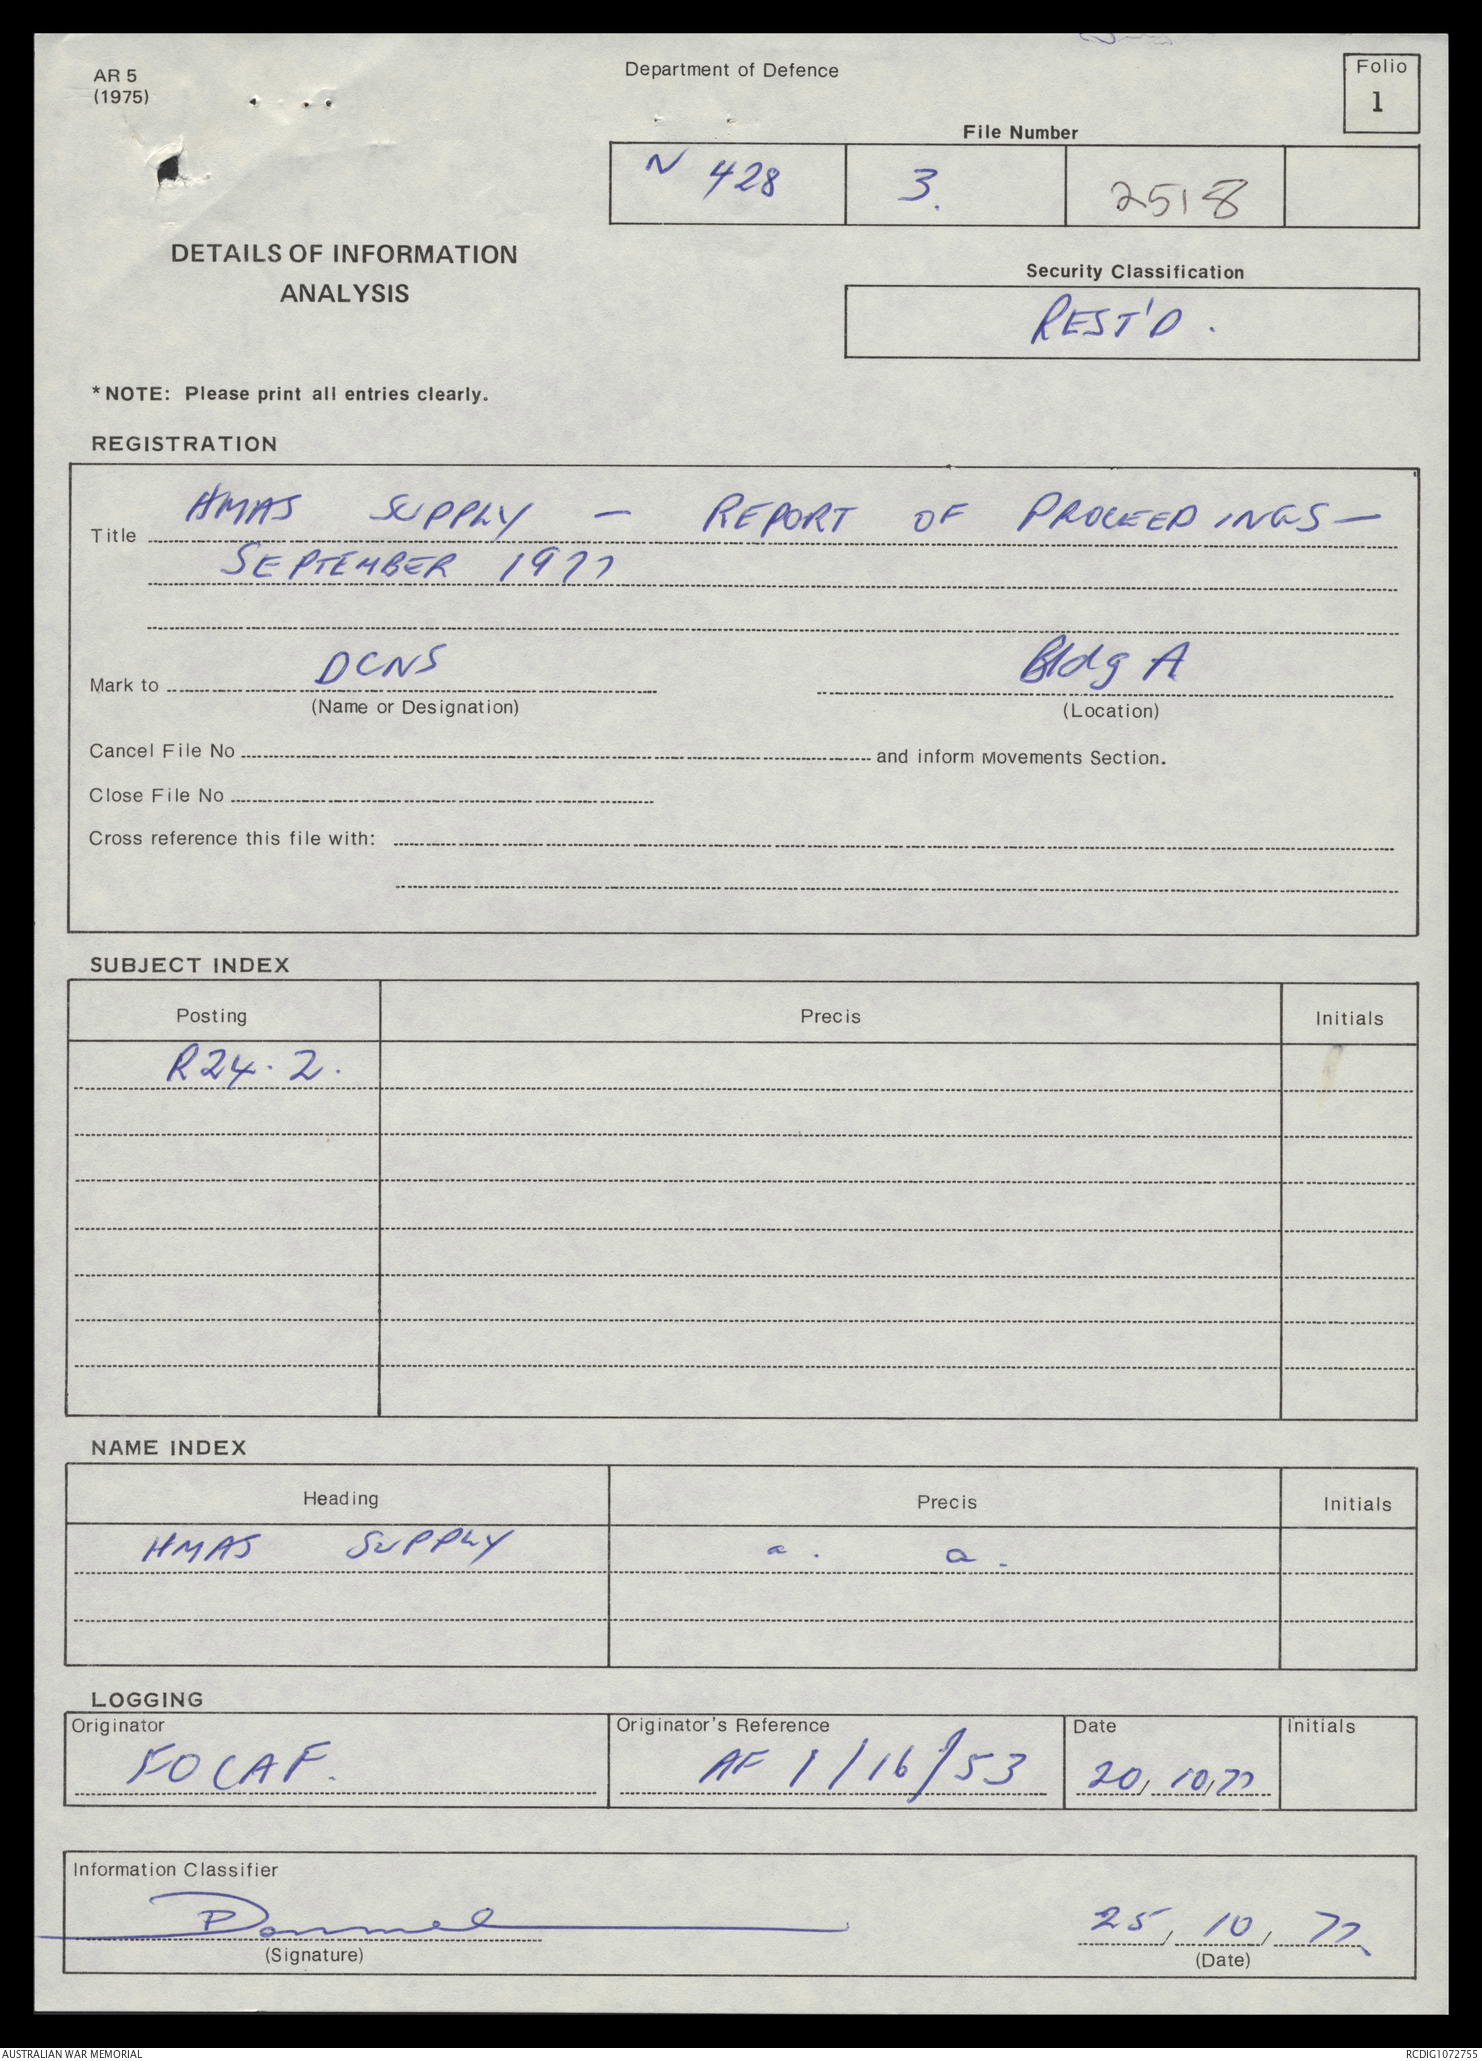 AR 5
(1975)
Department of Defence
Folio
1
File Number
N 428 3. 2518
DETAILS OF INFORMATION
ANALYSIS
Security Classification
REST'D.
*NOTE: Please print all entries clearly.
REGISTRATION
Title HMAS SUPPLY - REPORT OF PROCEEDINGS -
SEPTEMBER 1977
Mark to DCNS Bldg A
(Name or Designation) (Location)
Cancel File No and inform Movements Section.
Close File No
Cross reference this file with:
SUBJECT INDEX
Posting Precis Initials
R24.2.
NAME INDEX
Heading Precis Initials
HMAS SUPPLY a. a.
LOGGING
Originator Originator's Reference Date Initials
FOCAF. AF 1/16/53 20,10,77
Information Classifier
25, 10, 77
(Signature) (Date)
AUSTRALIAN WAR MEMORIAL RCDIG1072755